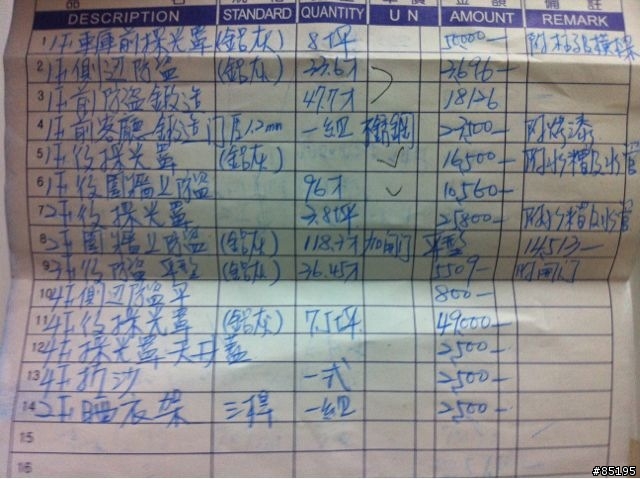 DESCRIPTION STANDARD QUANTITY U N AMOUNT REMARK
1 1F車庫前採光罩 (鋁灰) 8坪 50000-
2 1F側邊防盜 (鋁灰) 23.6才 2696-
3 1F前防盜鍛造 47.7才 18126
4 1F前客廳 鍛造门 厚1.2mm 一組 27500- 附烤漆
5 1F後採光罩 (鋁灰) 16,500- 附水糟及水管
6 1F後圍牆上防盜 96才 10,560-
7 2F後採光罩 2.8坪 25800- 附水糟及水管
8 2F圍牆上防盜 (鋁灰) 118.7才 加閘门 14513-
9 防盜 (鋁灰) 36.45才 5509- 附閘门
10 4F側邊防盜平 800-
11 4F後採光罩 (鋁灰) 7.5坪 49000-
12 4F採光罩天井蓋 2500-
13 4F折沙 一式 2500-
14 2F曬衣架 三桿 一組 2500-
15
16
#85195